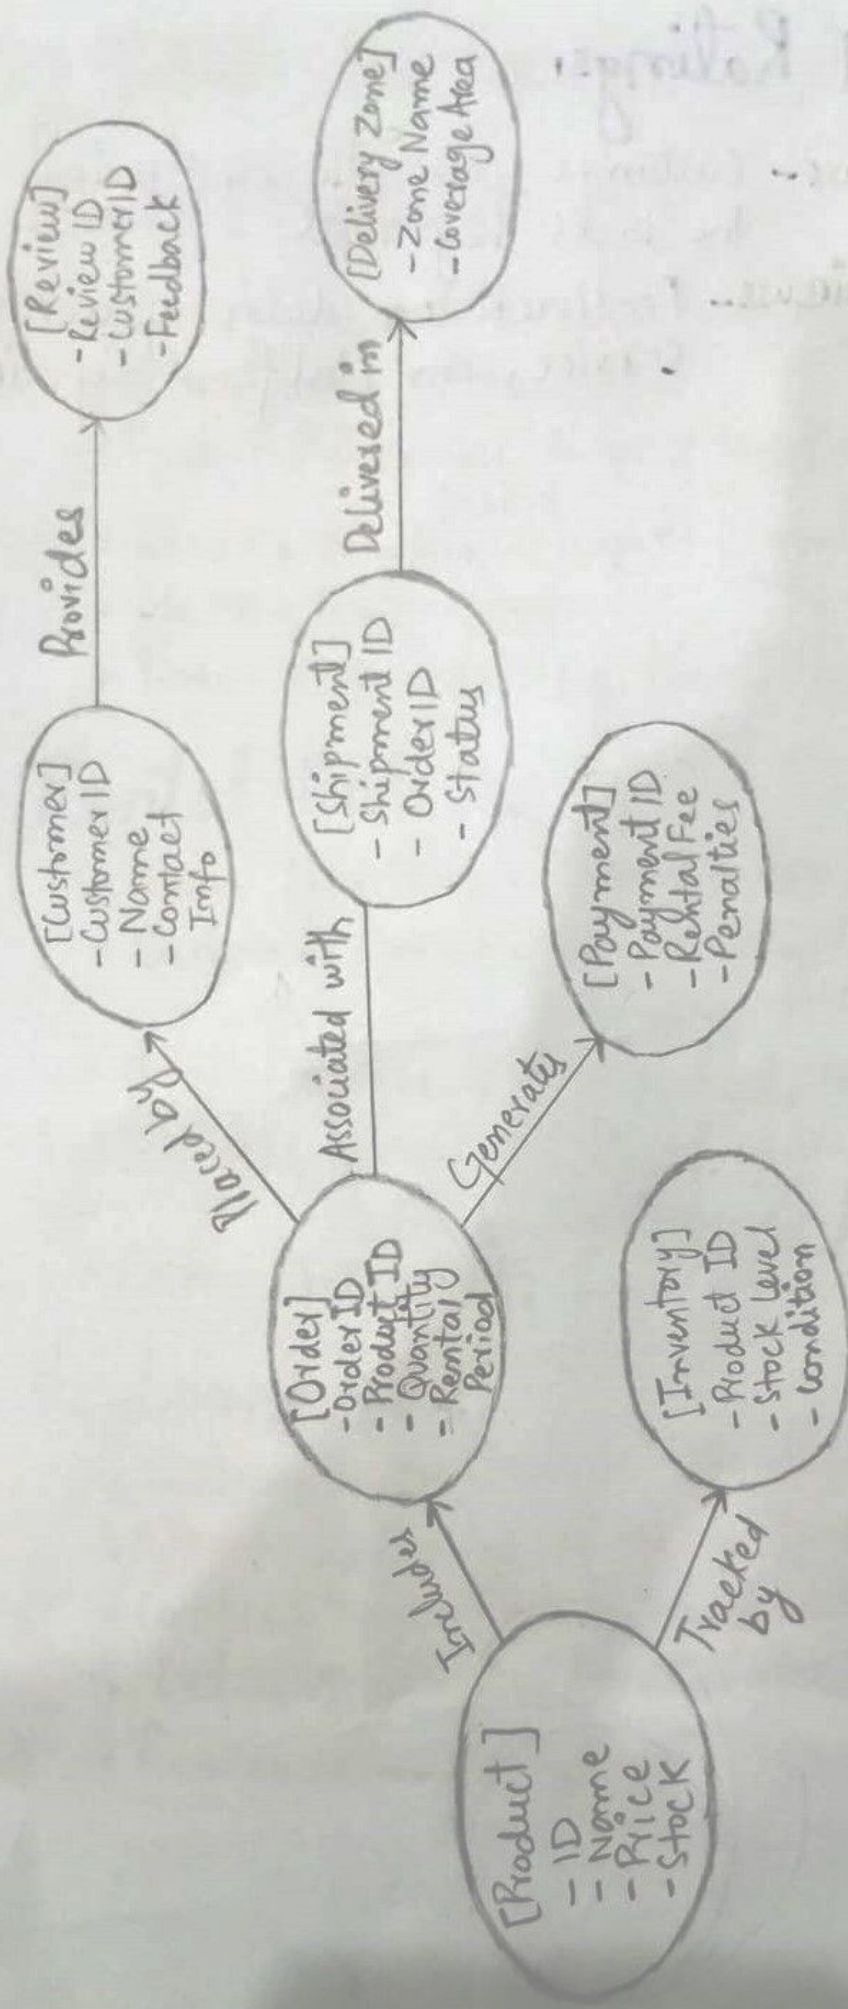 [Product]
- ID
- Name
- Price
- Stock
Includes
Tracked
by
[Order]
- Order ID
- Product ID
- Quantity
- Rental
Period
[Inventory]
- Product ID
- Stock level
- Condition
Placed by
Associated with
Generates
[Customer]
- Customer ID
- Name
- Contact
Info
[Shipment]
- Shipment ID
- Order ID
- Status
[Payment]
- Payment ID
- Rental Fee
- Penalties
Provides
Delivered in
[Review]
- Review ID
- Customer ID
- Feedback
[Delivery Zone]
- Zone Name
- Coverage Area